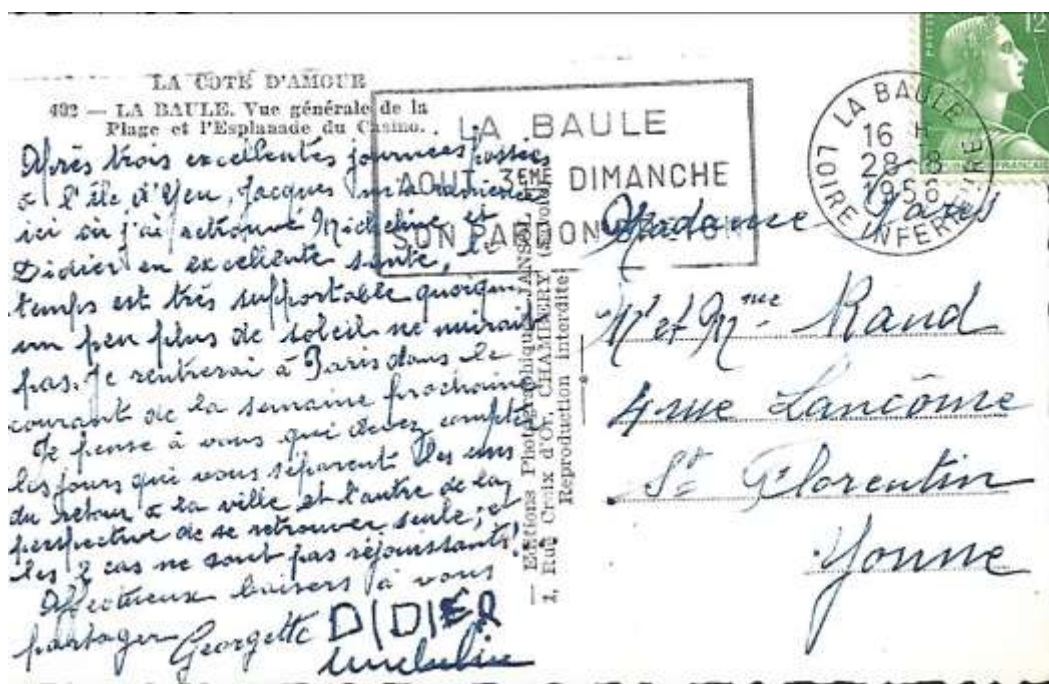 LA COTE D'AMOUR
402 — LA BAULE. Vue générale de la
Plage et l'Esplanade du Casino.
Après trois excellentes journées passées
à l'île d'Yeu, Jacques m'a ramenée
ici où j'ai retrouvé Micheline et
Didier en excellente santé, le
temps est très supportable quoiqu'
un peu plus de soleil ne nuirait
pas. Je rentrerai à Paris dans le
courant de la semaine prochaine
Je pense à vous qui devez compter
les jours qui vous séparent les uns
du retour à la ville et l'autre de la
perspective de se retrouver seule, et
les 2 cas ne sont pas réjouissants!
Affectueux baisers à vous
partager Georgette DIDIER
LA BAULE
AOUT 3EME DIMANCHE
SON PARDON BRETON
— Editions Photographiques JANSOL
2, Rue Croix d'Or, CHAMBERY (Savoie)
Reproduction interdite
LA BAULE
16 H
28-8
1956
LOIRE INFERIEURE
12
Madame
Mr et Mme Rand
4 rue Lancôme
St Florentin
Yonne